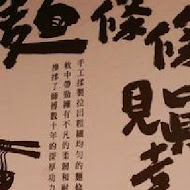 麵條條見真章
手工揉製拉出粗細均勻的麵條
軟中帶勁擁有不凡的柔韌和耐
了師傅數十年的深厚功力